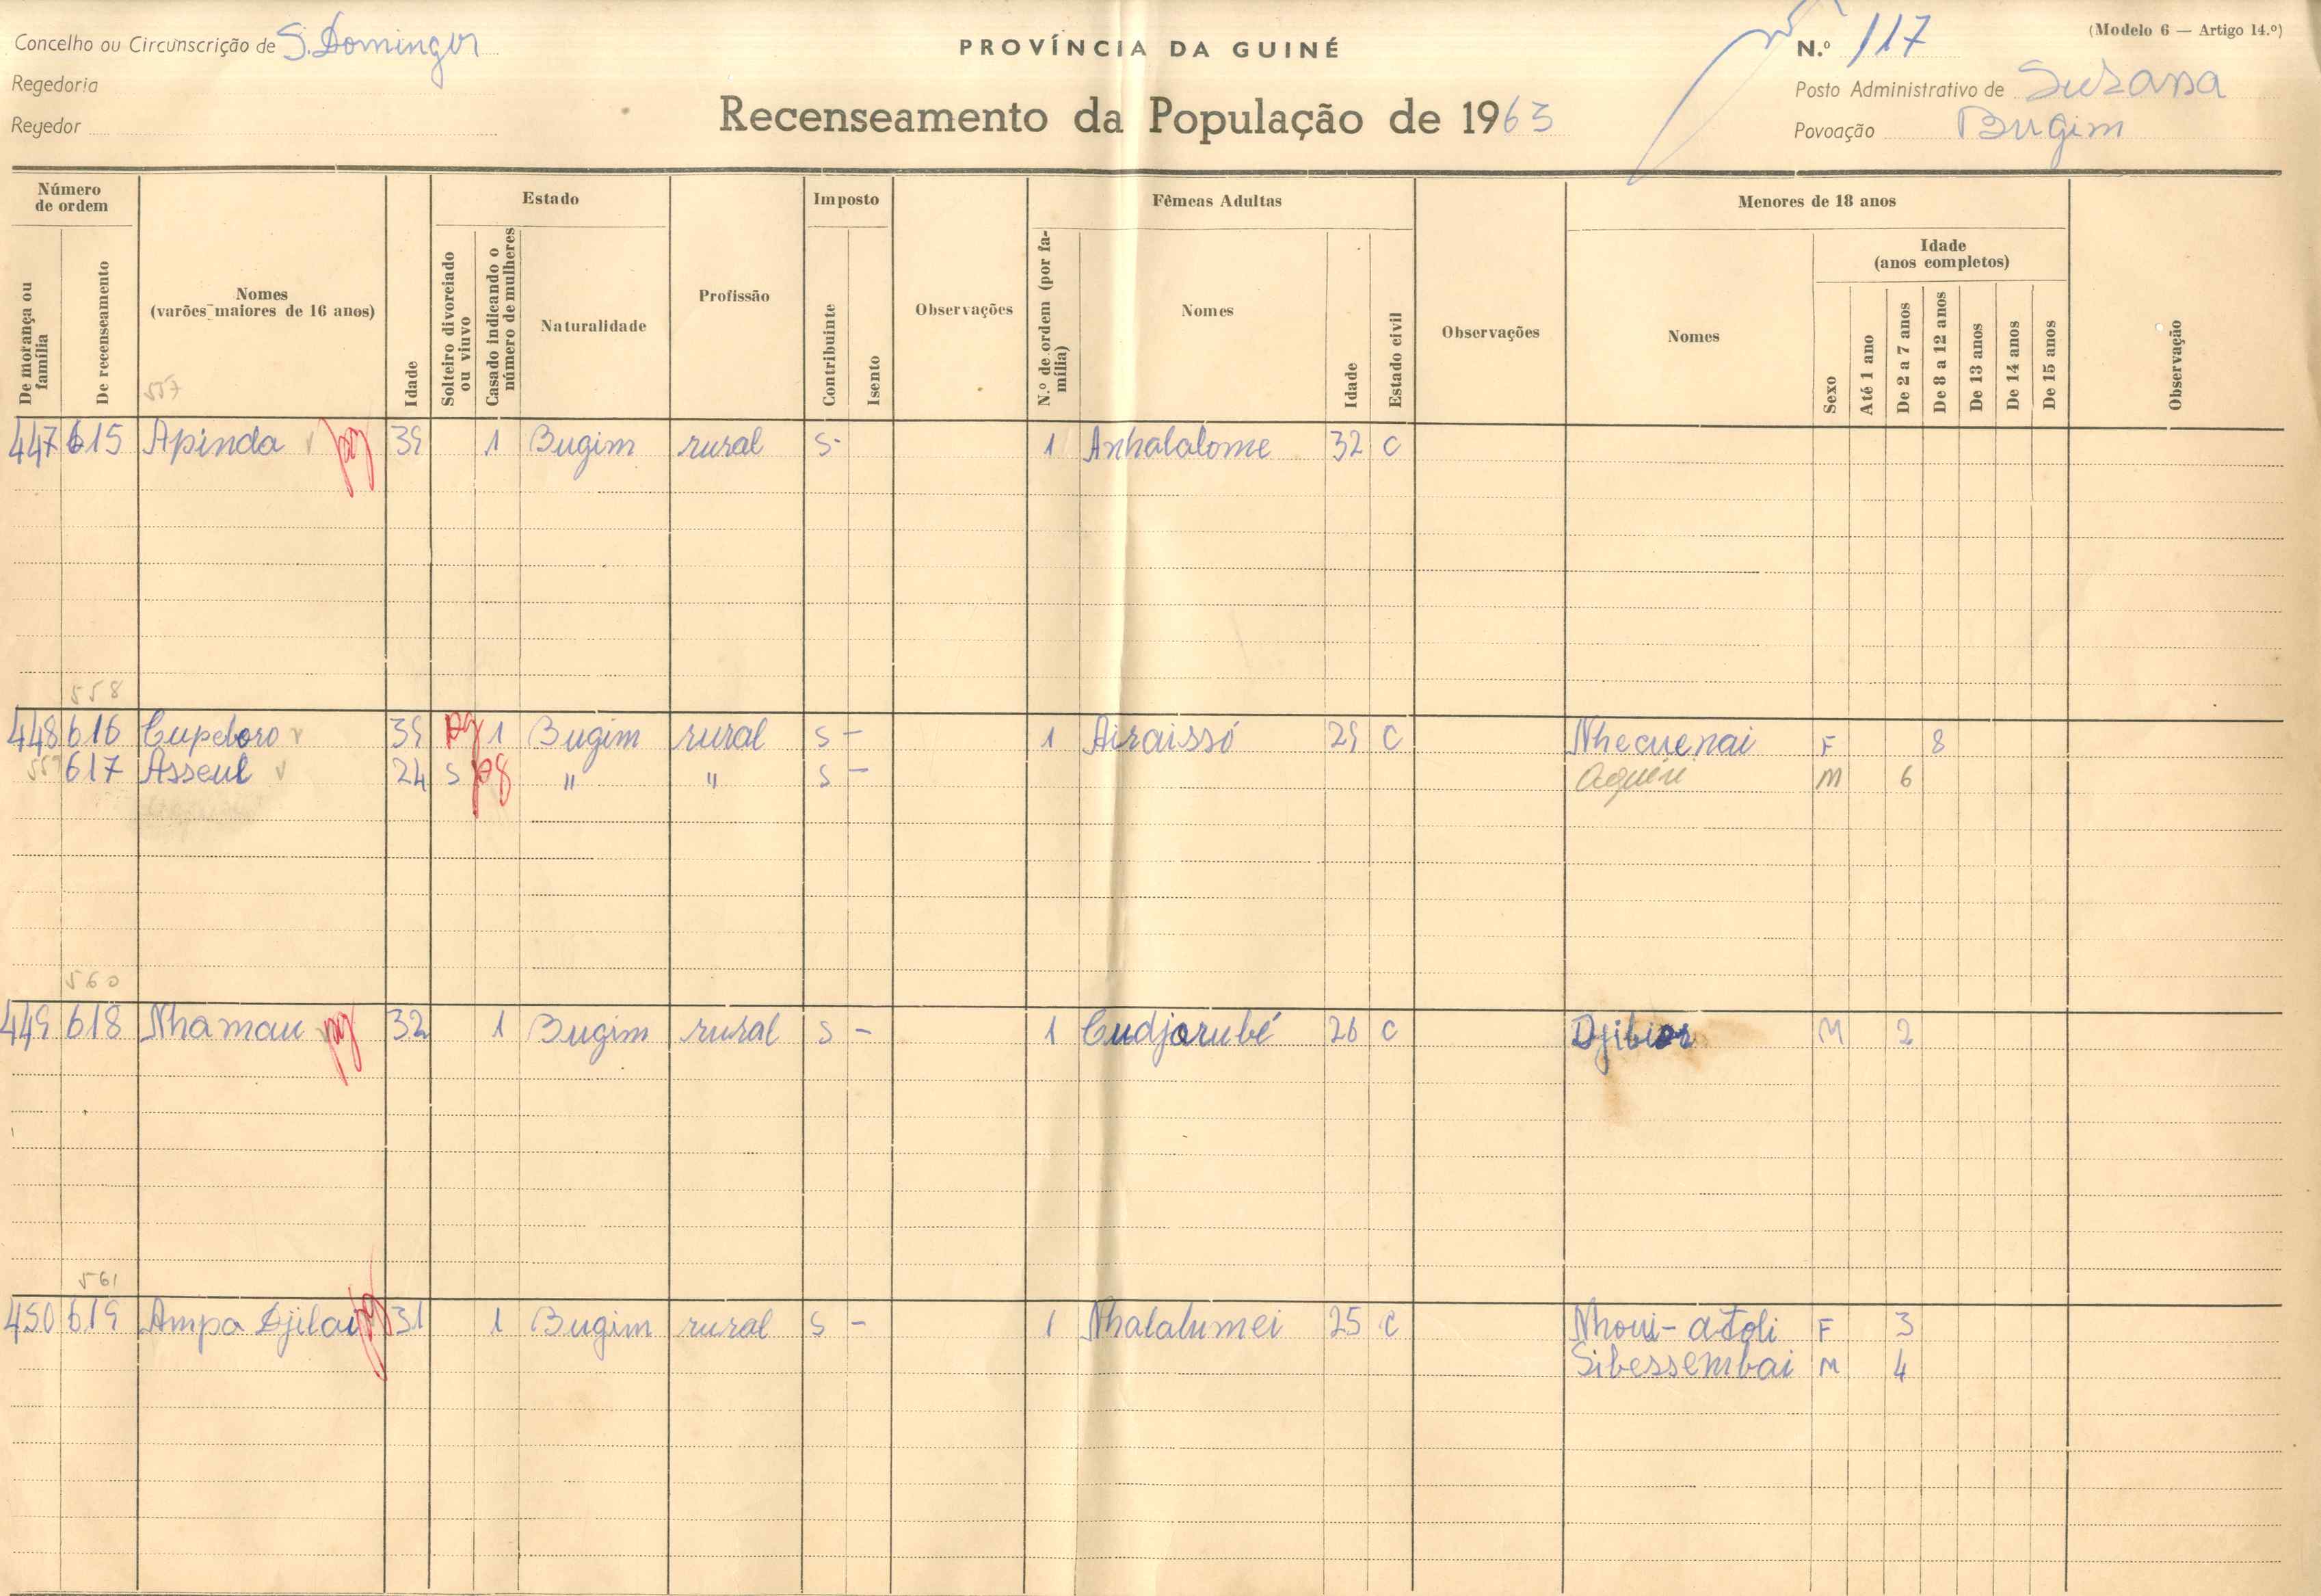 Concelho ou Circunscrição de S. Domingos
PROVÍNCIA DA GUINÉ
N.º 117
(Modelo 6 — Artigo 14.º)
Regedoria
Posto Administrativo de Suzana
Regedor
Recenseamento da População de 1963
Povoação Bugim
Número de ordem
De morança ou família
De recenseamento
Nomes
(varões maiores de 16 anos)
Idade
Estado
Solteiro divorciado ou viuvo
Casado indicando o número de mulheres
Naturalidade
Profissão
Imposto
Contribuinte
Isento
Observações
N.º de ordem (por família)
Fêmeas Adultas
Nomes
Idade
Estado civil
Observações
Menores de 18 anos
Nomes
Sexo
Idade
(anos completos)
Até 1 ano
De 2 a 7 anos
De 8 a 12 anos
De 13 anos
De 14 anos
De 15 anos
Observação
557
447 615 Apinda v pg 39 1 Bugim rural S - 1 Anhalalome 32 C
558
448 616 Cupeloro v 39 pg 1 Bugim rural S - 1 Airaissó 29 C Nhecuenai F 8
559 617 Asseul v 24 S pg " " S - Aqueri M 6
560
449 618 Nhamau pg 32 1 Bugim rural S - 1 Cudjorubé 26 C Djibior M 2
561
450 619 Ampa Djilai pg 31 1 Bugim rural S - 1 Nhalalumei 25 C Nhoui-atoli F 3
Sibessembai M 4